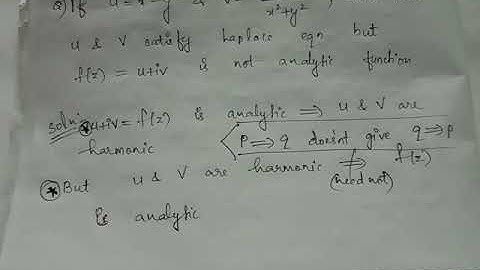 If U = x²-y² & V = x²+y² ,
u & v satisfy Laplace eqn but
f(z) = u+iv is not analytic function
soln: * u+iv = f(z) is analytic ⟹ u & v are
harmonic p⟹q doesn't give q⟹p
* But u & v are harmonic ⟹ f(z)
(need not)
is analytic